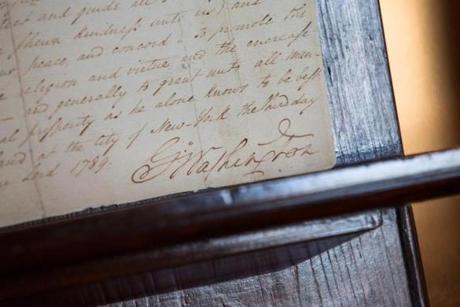 and guide all
shewn kindness unto us) and
peace, and concord - To promote the
religion and virtue, and the encrease
and generally to grant unto all man-
al prosperity as he alone knows to be best.
and at the city of New-York the third day
Lord 1789.
G:Washington